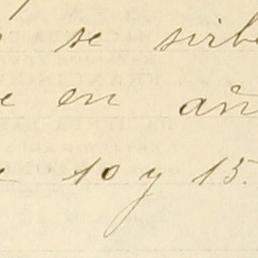 se sirbe
e en añ
10 y 15.